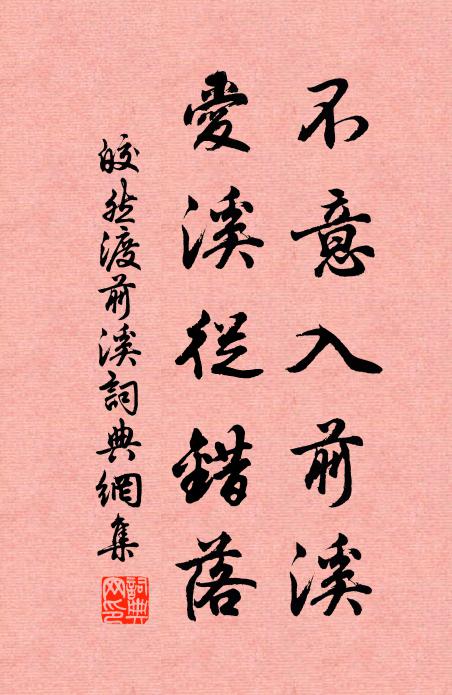 不意入前溪
愛溪從錯落
皎然渡前溪詞典網集
詞典網印